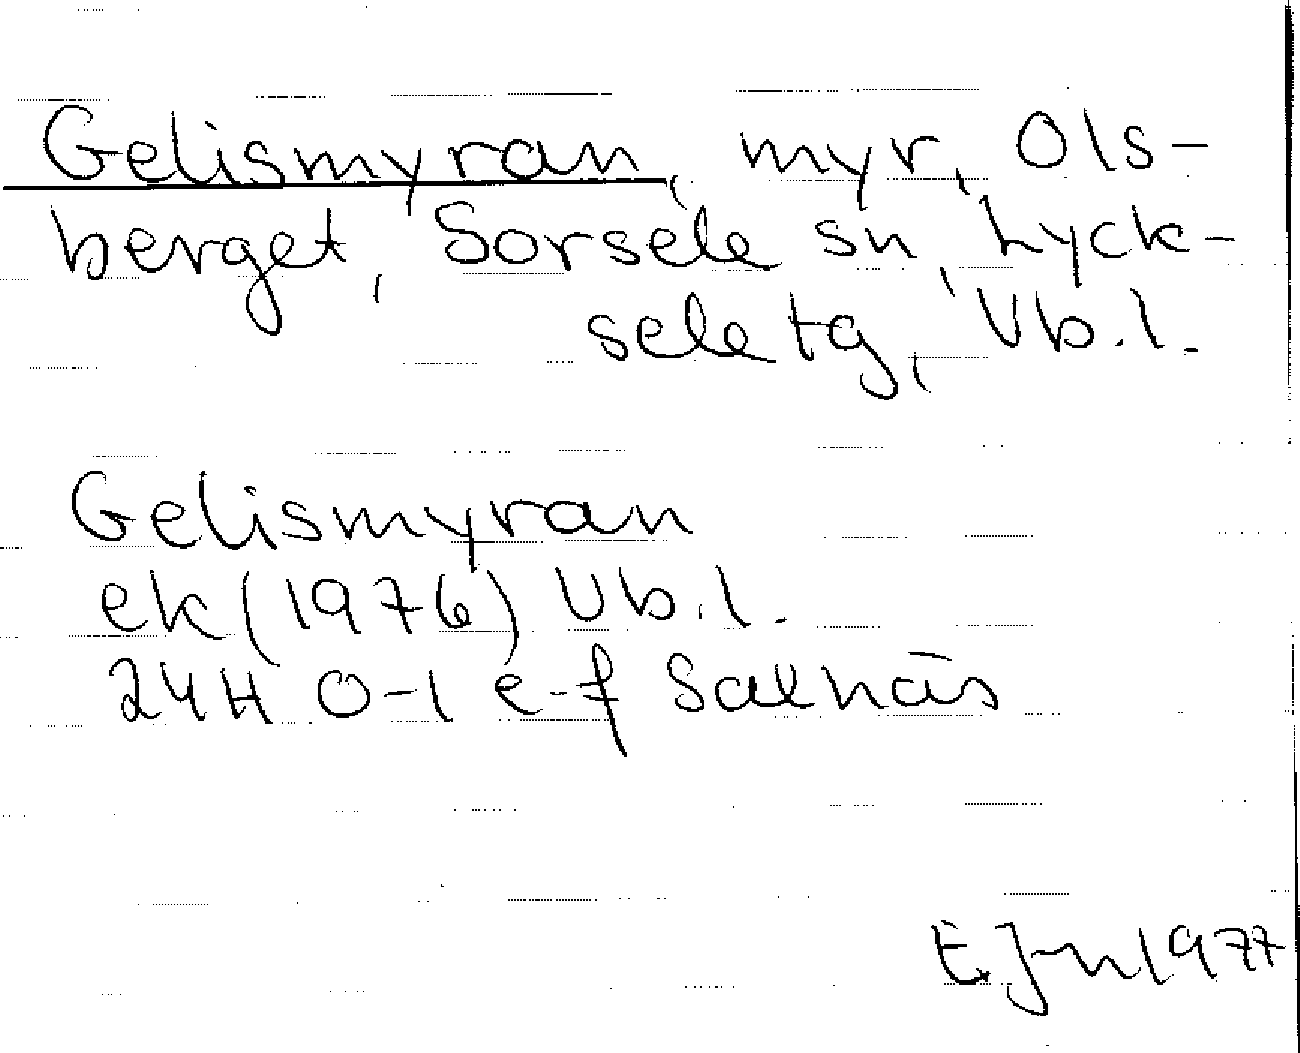 Gelismyran, myr, Ols-
berget, Sorsele sn, Lyck-
sele tg, Vb.l.
Gelismyran
ek (1976) Vb.l.
24H 0-1 e-f Salnäs
E. J-n 1977